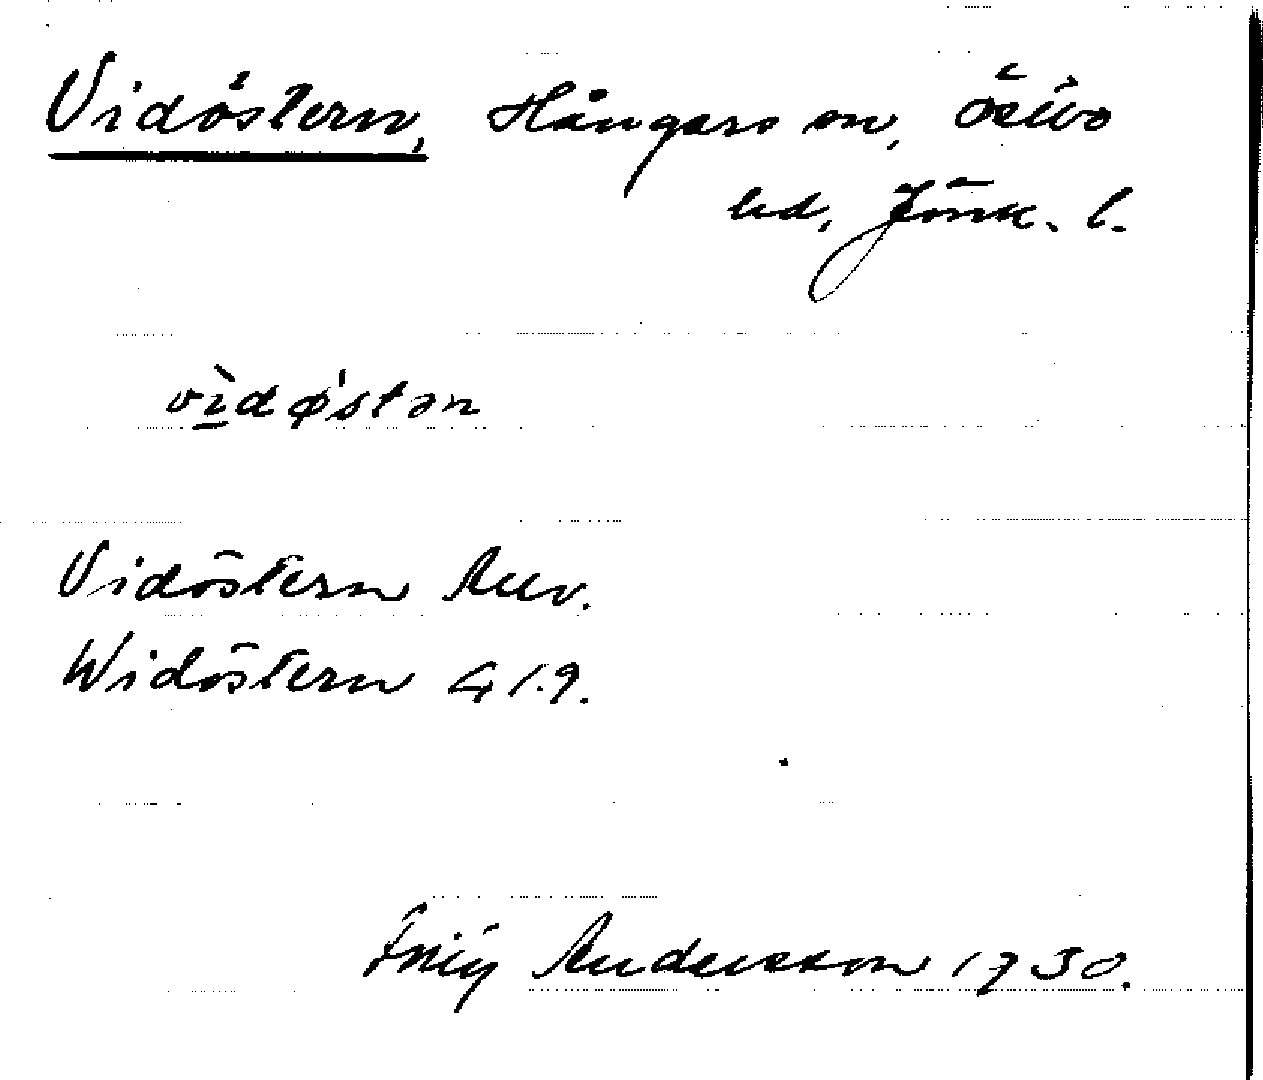 Vidöstern, Hångers sn, Östbo
hd, Jönk. l.
vìdøstən
Vidöstern Anv.
Widöstern G 1.9.
Andersson 1930.